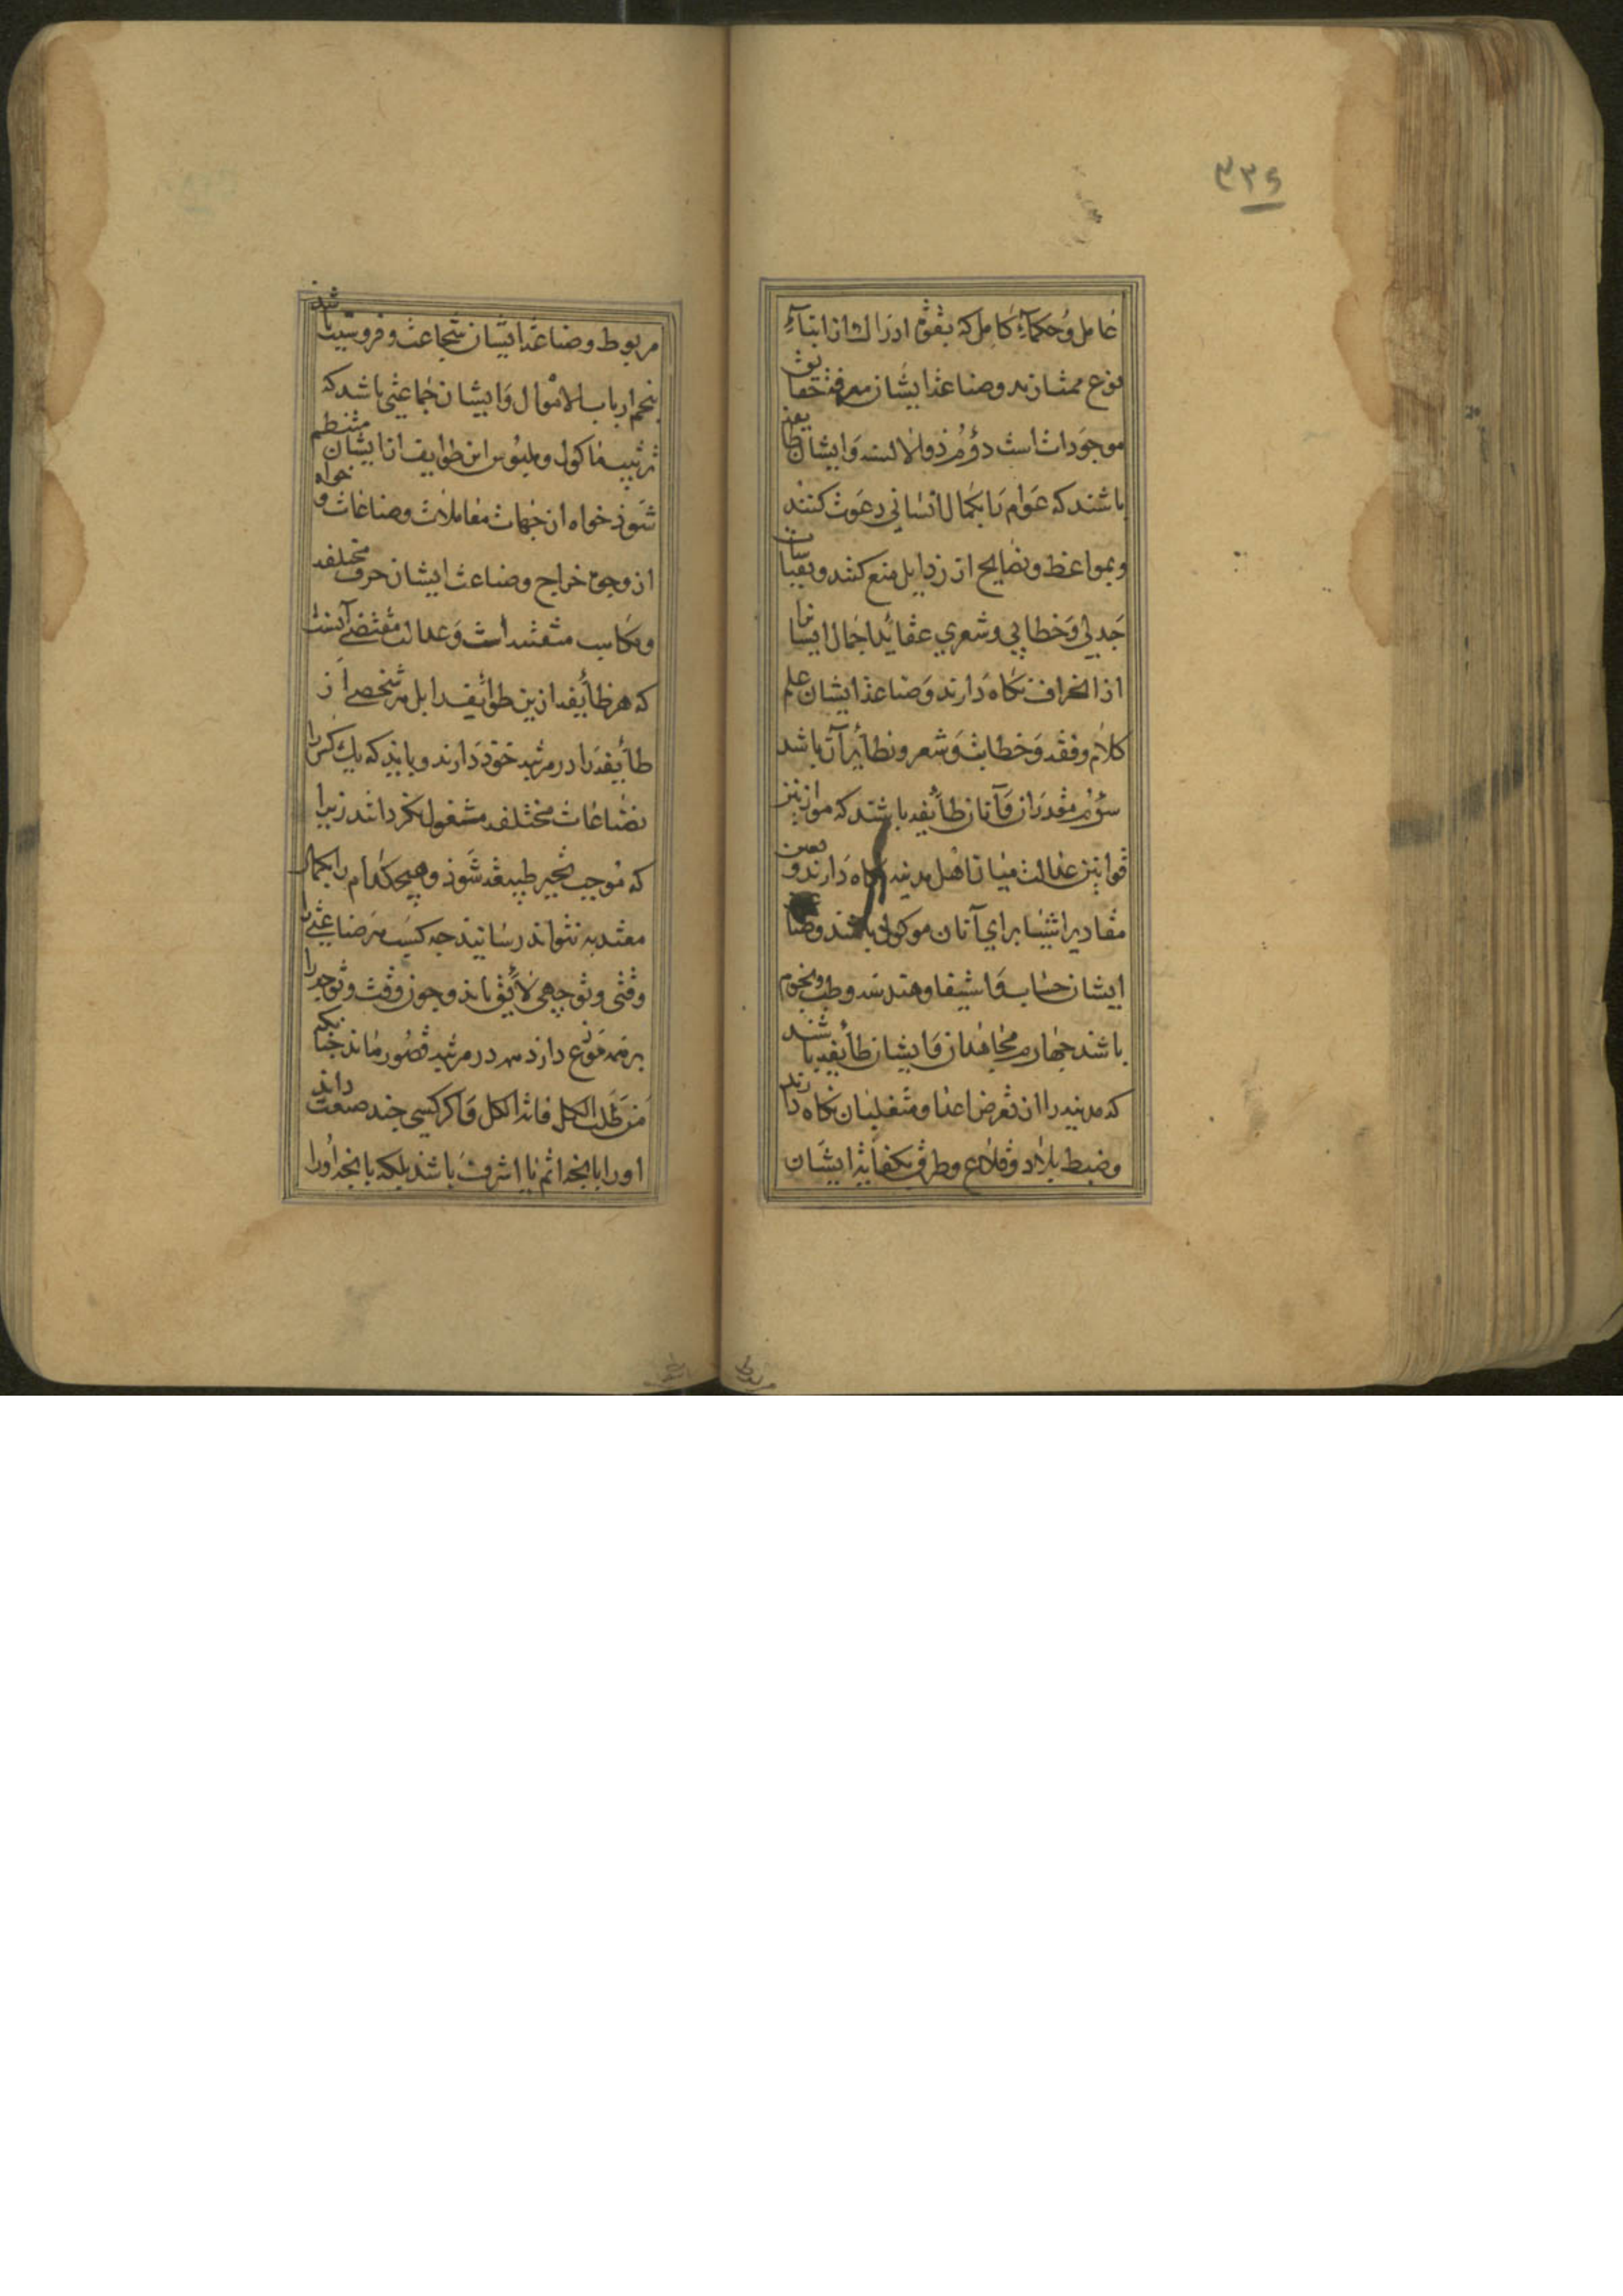 ۳۳۶
عامل و حکماء کامل که بقوة ادراک از ابناء
نوع ممتازند و صناعة ایشان معرفة حقایق
موجودات است دوم ذو الالسنه و ایشان طایفه
باشند که عوام را بکمال انسانی دعوت کنند
و بمواعظ و نصایح از رذایل منع کنند و بقیاسات
جدلی و خطابی و شعری عقاید اجمال ایشانرا
از انحراف نگاه دارند و صناعة ایشان علم
کلام و فقه و خطابت و شعر و نظایر آن باشد
سؤم مقدران و آنان طایفه باشند که موازین
قوانین عدالت میان اهل مدینه نگاه دارند و تعیین
مقادیر اشیا برای آنان موکول باشد و صناعة
ایشان حساب و استیفا و هندسه و طب و نجوم
باشد چهارم مجاهدان و ایشان طایفه باشند
که مدینه را از تعرض اعدا و متغلبان نگاه دارند
و ضبط بلاد و قلاع و طرق بکفایة ایشان
مربوط و صناعة ایشان شجاعت و فروسیت باشد
پنجم ارباب الاموال و ایشان جماعتی باشد که
ترتیب ماکول و ملبوس این طوایف از ایشان منتظم
شود خواه از جهات معاملات و صناعات و خواه
از وجوه خراج و صناعت ایشان حرف مختلفه
و مکاسب متفننه است و عدالت مقتضی آنست
که هر طایفه ازین طوایف بل هر شخصی از
طایفه را در مرتبه خود دارند و باید که یک کس را
بصناعات مختلفه مشغول نگردانند زیرا
که موجب تحیر طبیعه شود و هیچکدام را بکمال
معتد به نتواند رسانید چه کسب هر صناعتی را
وقتی و توجهی لایق باید و چون وقت و توجه را
بر همه موزع دارد همه در مرتبه قصور ماند چنانکه
من طلب الکل فاته الکل و اگر کسی چند صنعت داند
او را بانچه اتم یا اشرف باشد بلکه بانچه او را